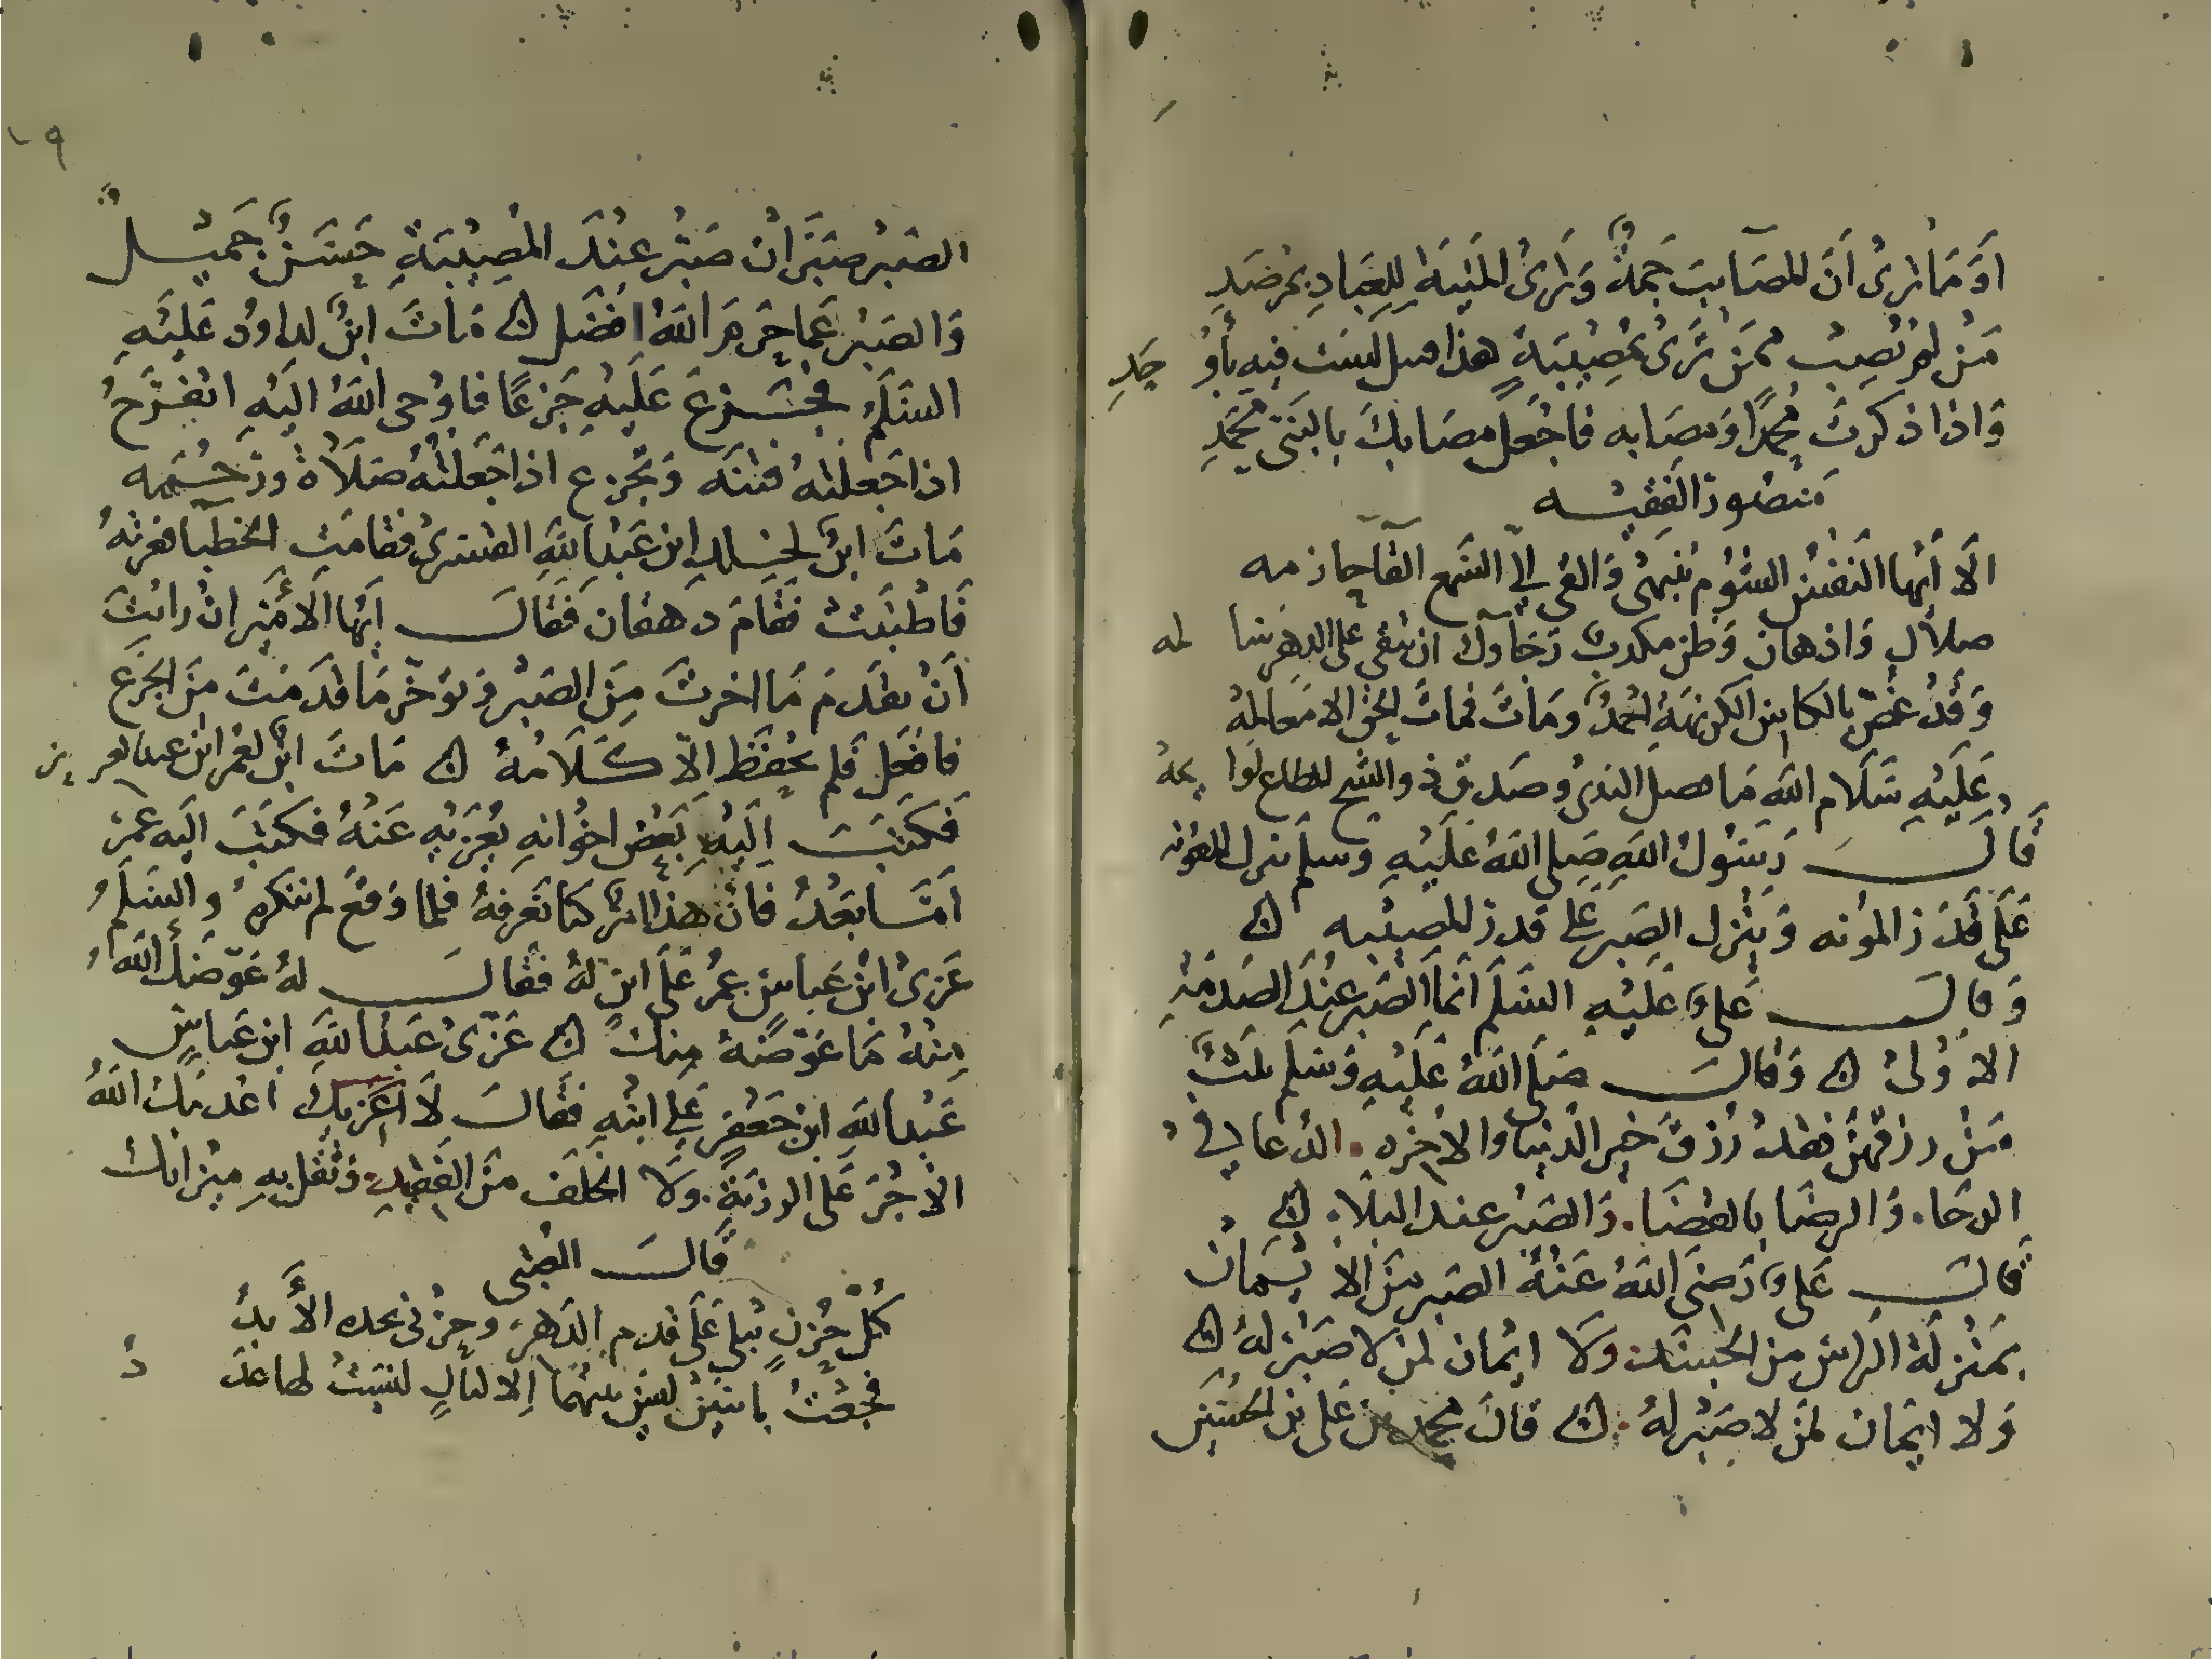 اَوَ مَا تری اَنَّ المصَآيبَ جَمةٌ وَتَرَى المَنِيَةَ لِلعِبَادِ بمرصَدِ
مَنْ لم يُصِبْ ممَن تَرَى بمُصِيبَةٍ هذا سبيل لَسْتَ فيه بأوْحَدِ
وَاذا ذكرتَ محُمَّدًا وَمصَابه فاجْعَل مصَابكَ بالنبَى محُمَدِ
مَنصُور الفَقيْه
الَا اَيُّهَا النَفْسُ
صلالٍ وَاذهان وَظن مكذبٌ رَجَآوك ان تبقى على الدهر سَالمه
وَقَدْ غُصّ بالكاس الكريهَةِ احمدٌ ومَاتَ فماتَ الحَق الا مَعَالمهُ
عَلَيهِ سَلَام اللهِ مَا فصل الندىُ وصَدق ذو الشح المطاع لوَايمهُ
قَالَ رَسُولُ اللهِ صَلى اللهُ عَلَيهِ وَسلم تنزل المعُونه
عَلَى قَدَر المؤنه وَيَنْزل الصَبر على قدر المصيْبه
وَقالَ عَلىٌ عَلَيْهِ السَلَم انماَ الصَبر عِنْدَ الصَدمَةِ
الاوْلىْ وَقالَ صَلَى اللهُ عَلَيْهِ وَسَلم ثلثٌ
مَنْ رزقهُنَ فقد رُزقَ خير الدنيا والاخره الدُعا في
الرخا وَالرضَا بالقضَا وَالصَبْر عند البَلاء
قالَ عَلىٌ رَضىَ اللهُ عَنْهُ الصَبر مِنَ الايمَان
بمَنْزلَةِ الرَاس من الجَسَدِ وَلَا ايْمان لمن لا صَبْر لهُ
وَلا ايمان لمن لا صَبْر لهُ قالَ محمد بن عَلى بن الحُسَيْن
الصَبْر صَبَرَانِ صَبْر عِنْدَ المْصِيْبَةِ حَسَنٌ جَميْلٌ
وَالصَبْر عَما حَرمَ اللهُ افضَل مَاتَ ابنٌ لداودُ عَلَيْهِ
السَلَمُ فجَزعَ عَلَيْهِ جَزعًا فاوْحى اللهُ اليَهِ اتفْرَحُ
اذا جَعلتهُ فتنَه وَتجْزع اذا جَعَلتُهُ صَلاةً ورَحْمَه
مَاتَ ابنٌ لخالد ابن عَبْد اللهِ القسْرىُ فقامَتِ الخطبا فعزتْهُ
فَاطْنَبَتْ فقَامَ دهقان فَقَالَ اَيُّها الاَمُيْر انْ رايتَ
اَنْ تقَدمَ مَا اخرتَ مِنَ الصَبْر وَتوَخّر مَا قدَمتَ مِنَ الجزَع
فافعَل فَلم يحُفَظ اِلاّ كَلَامُهُ مَاتَ ابنٌ لعُمرَ ابن عبد العزيز
فَكتبَ اِلَيْهِ بَعْض اخْوانهِ يُعَزيْهِ عَنْهُ فكتَبَ اليَه عُمر
اَمَّا بَعْدُ فَانَ هَذَا امرٌ كنا نَعرفهُ فلما وَقعَ لم ننكرهُ والسَلَمُ
عَزىْ ابْن عَباسٍ عمرُ عَلَى ابنٍ لهُ فقالَ لهُ عَوّضَكَ اللهُ
مِنْهُ مَا عَوّضَهُ مِنكْ عَزّىْ عَبْدُ اللهِ ابن عَباسٍ
عَبْد اللهِ ابن جَعْفَر عَلى ابْنهِ فقَالَ لَا اعَدمَكَ اللهُ
الاجْرَ عَلى الرزيَةِ وَلَا الخلَف مَنَ الفَقيْدِ وَثَقل بهِ ميْزانكَ
قالَ العُتْبى
كُلّ حُزنٍ يَبلى عَلَى قدم الدَهرِ وحزْنى يجده الاَبدُ
فجُعْتُ باثنَيْنِ لَيسَ بَيْنَهُمَا اِلا ليَالٍ ليْسَتْ لها عَدَدُ